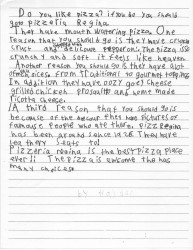 Do you like pizza? if you do you should
go to pizzeria Regina
They have mouth watering pizza. One
reason that you should go is they have crispy
crust and delicious pepperoni. The pizza is
crunchy and soft it feels like heaven
Another reason you should go is they have alot
of choices. From traditional to gourmet toppings.
In addition they have oozy gooey cheese
grilled chicken prosciutto and home made
ricotta cheese.
A third reason that you should go is
because of the decour they have pictures of
famouse people who ate there. Pizza Regina
has been around since 1926. They have
leathery seats to!
Pizzeria regina is the best pizza place
ever!! The pizza is awesome tha has
many choices